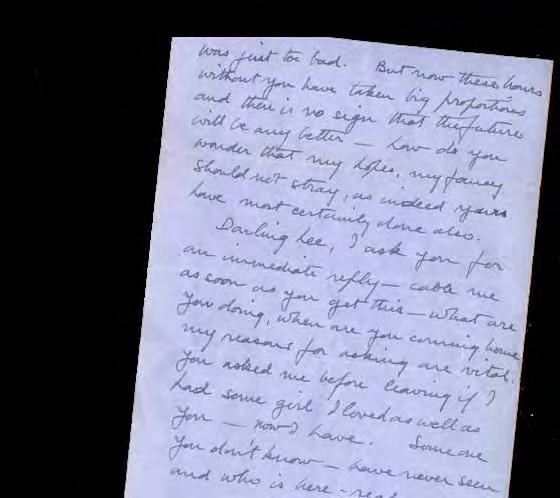 was just too bad. But now these hours
without you have taken big proportions
and there is no sign that the future
will be any better — how do you
wonder that my hopes, my fancy
should not stray, as indeed yours
have most certainly done also.
Darling Lee, I ask you for
an immediate reply — cable me
as soon as you get this — what are
you doing, when are you coming home
my reasons for asking are vital.
You asked me before leaving if I
had some girl I loved as well as
you — now I have. Someone
you don't know — have never seen
and who is here -